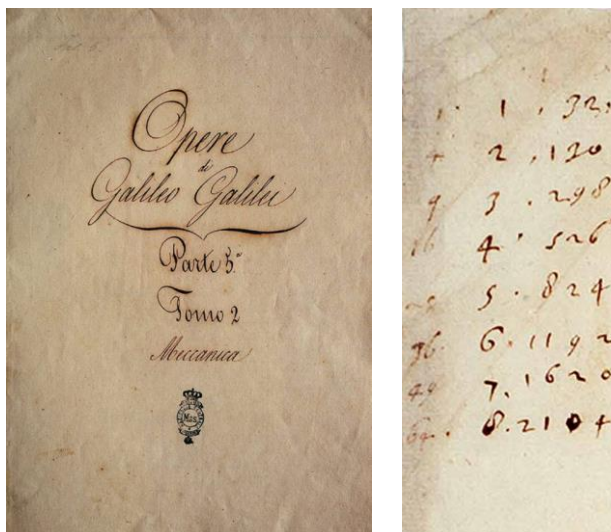 Opere
di
Galileo Galilei
Parte 5.ª
Tomo 2
Meccanica
1 . 1 . 32.
4 2 . 130
9 3 . 298
16 4 . 526
5 . 824
36 . 6 . 1192
49 7 . 1620
64 . 8 . 2104